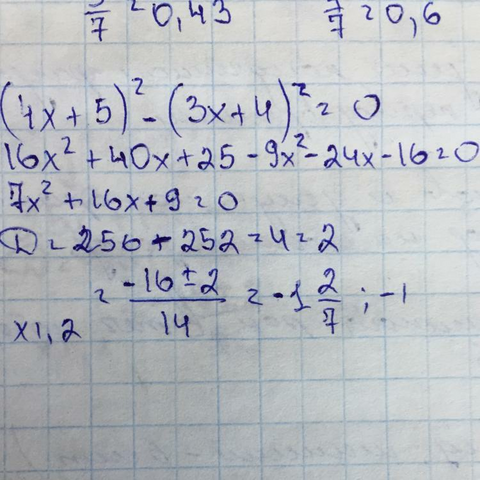 3/7 = 0,43 7/7 = 0,6
(4x+5)² - (3x+4)² = 0
16x² + 40x + 25 - 9x² - 24x - 16 = 0
7x² + 16x + 9 = 0
D = 256 - 252 = 4 = 2
x1,2 = -16 ± 2 / 14 = -1 2/7 ; -1